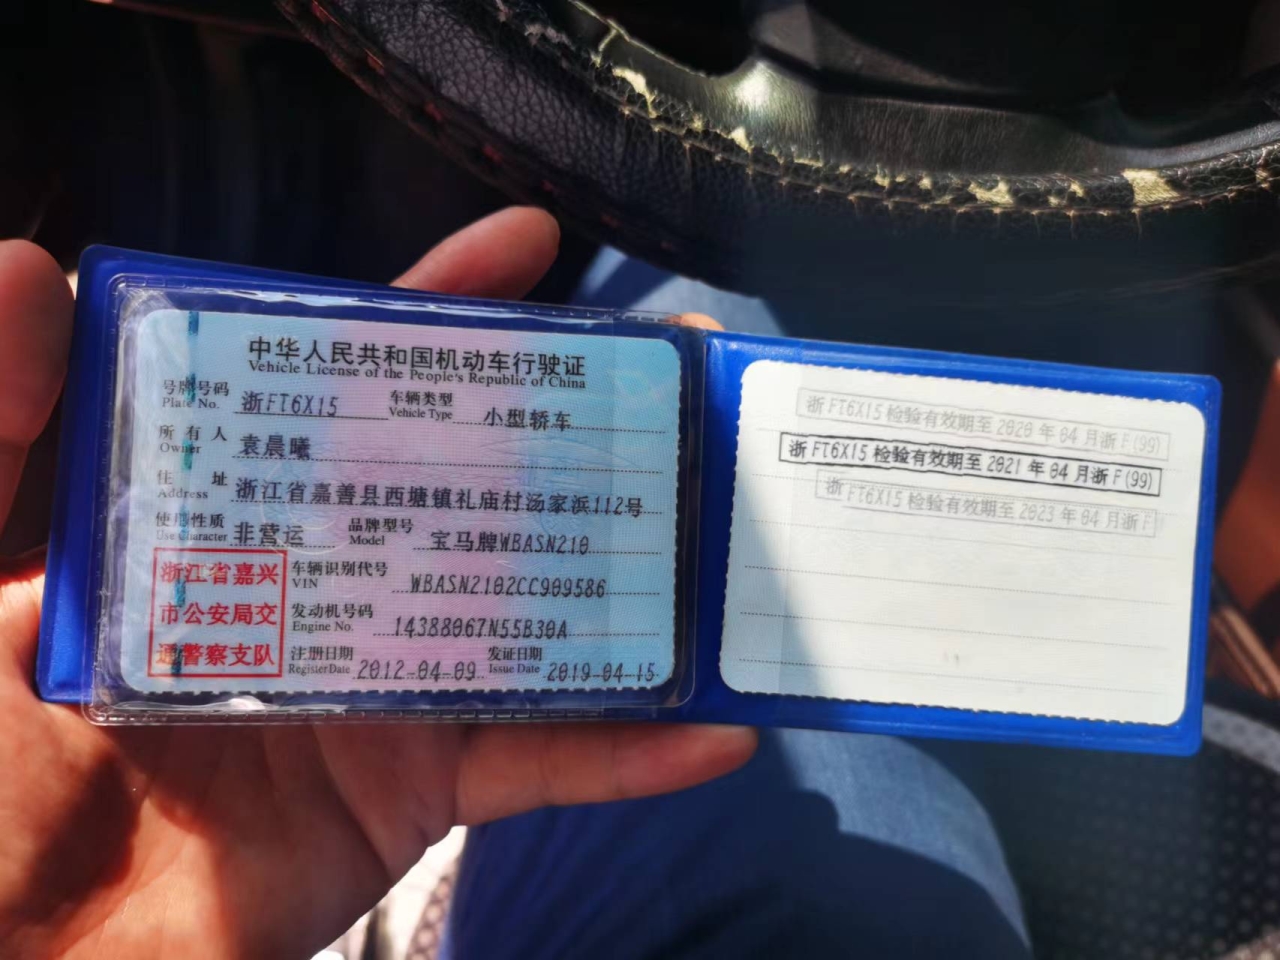 中华人民共和国机动车行驶证
Vehicle License of the People's Republic of China
号牌号码 浙FT6X15 车辆类型 小型轿车
Plate No. Vehicle Type
所有人 袁晨曦
Owner
住址 浙江省嘉善县西塘镇礼庙村汤家浜112号
Address
使用性质 非营运 品牌型号 宝马牌WBASN210
Use Character Model
浙江省嘉兴
市公安局交
通警察支队
车辆识别代号 WBASN2102CC909586
VIN
发动机号码 14388067N55B30A
Engine No.
注册日期 2012-04-09 发证日期 2019-04-15
Register Date Issue Date
浙FT6X15 检验有效期至 2020 年 04 月浙F(99)
浙FT6X15 检验有效期至 2021 年 04 月浙F(99)
浙FT6X15 检验有效期至 2023 年 04 月浙F